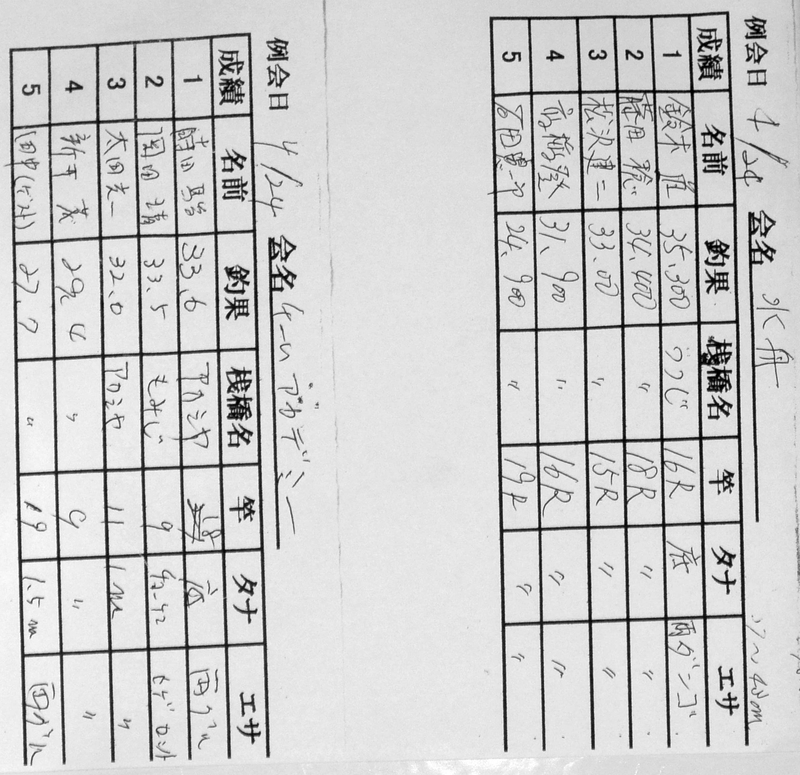 例会日 4/24 会名 水舟
成績 名前 釣果 桟橋名 竿 タナ エサ
1 鈴木 35.300 つつじ 16R 底 両ダンゴ
2 藤田 34.400 〃 18R 〃 〃
3 松沢建二 33.00 〃 15R 〃 〃
4 高橋登 31.900 〃 16R 〃 〃
5 24.900 〃 19R 〃 〃
例会日 4/24 会名 チームアカデミー
成績 名前 釣果 桟橋名 竿 タナ エサ
1 33.6 アカミヤ 18 底
2 岡田 33.5 もみじ 9
3 太田 32.0 アカミヤ 11 1m 〃
4 新井 茂 29.4 〃 9 〃 〃
5 田中 27.7 〃 19 1.5m